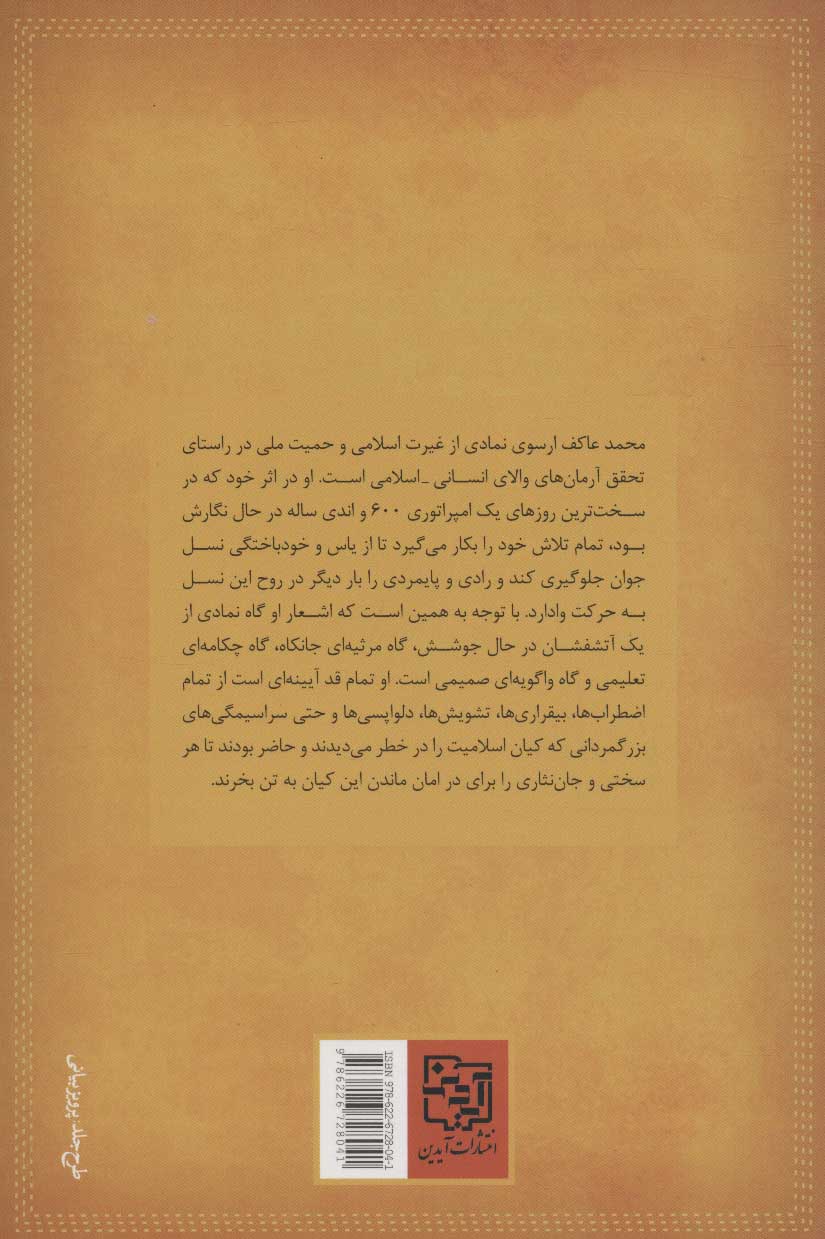 محمد عاکف ارسوی نمادی از غیرت اسلامی و حمیت ملی در راستای
تحقق آرمان‌های والای انسانی -اسلامی است. او در اثر خود که در
سخت‌ترین روزهای یک امپراتوری ۶۰۰ و اندی ساله در حال نگارش
بود، تمام تلاش خود را بکار می‌گیرد تا از یاس و خودباختگی نسل
جوان جلوگیری کند و رادی و پایمردی را بار دیگر در روح این نسل
به حرکت وادارد. با توجه به همین است که اشعار او گاه نمادی از
یک آتشفشان در حال جوشش، گاه مرثیه‌ای جانکاه، گاه چکامه‌ای
تعلیمی و گاه واگویه‌ای صمیمی است. او تمام قد آیینه‌ای است از تمام
اضطراب‌ها، بیقراری‌ها، تشویش‌ها، دلواپسی‌ها و حتی سراسیمگی‌های
بزرگمردانی که کیان اسلامیت را در خطر می‌دیدند و حاضر بودند تا هر
سختی و جان‌نثاری را برای در امان ماندن این کیان به تن بخرند.
آیدین
انتشارات آیدین
ISBN 978-622-6728-04-1
9 786226 728041
طرح جلد: پرویز بیانی